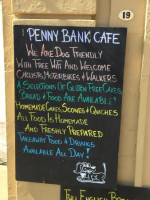 19
PENNY BANK CAFE
WE ARE DOG FRIENDLY
WITH FREE WIFI AND WELCOME
CYCLISTS, MOTORBIKES & WALKERS
A SELECTIONS OF GLUTEN FREE CAKES,
BREAD & FOOD ARE AVAILABLE!
HOMEMADE CAKES, SCONES & QUICHES
ALL FOOD IS HOMEMADE
AND FRESHLY PREPARED
TAKEAWAY FOOD & DRINKS
AVAILABLE ALL DAY!
FULL ENGLISH